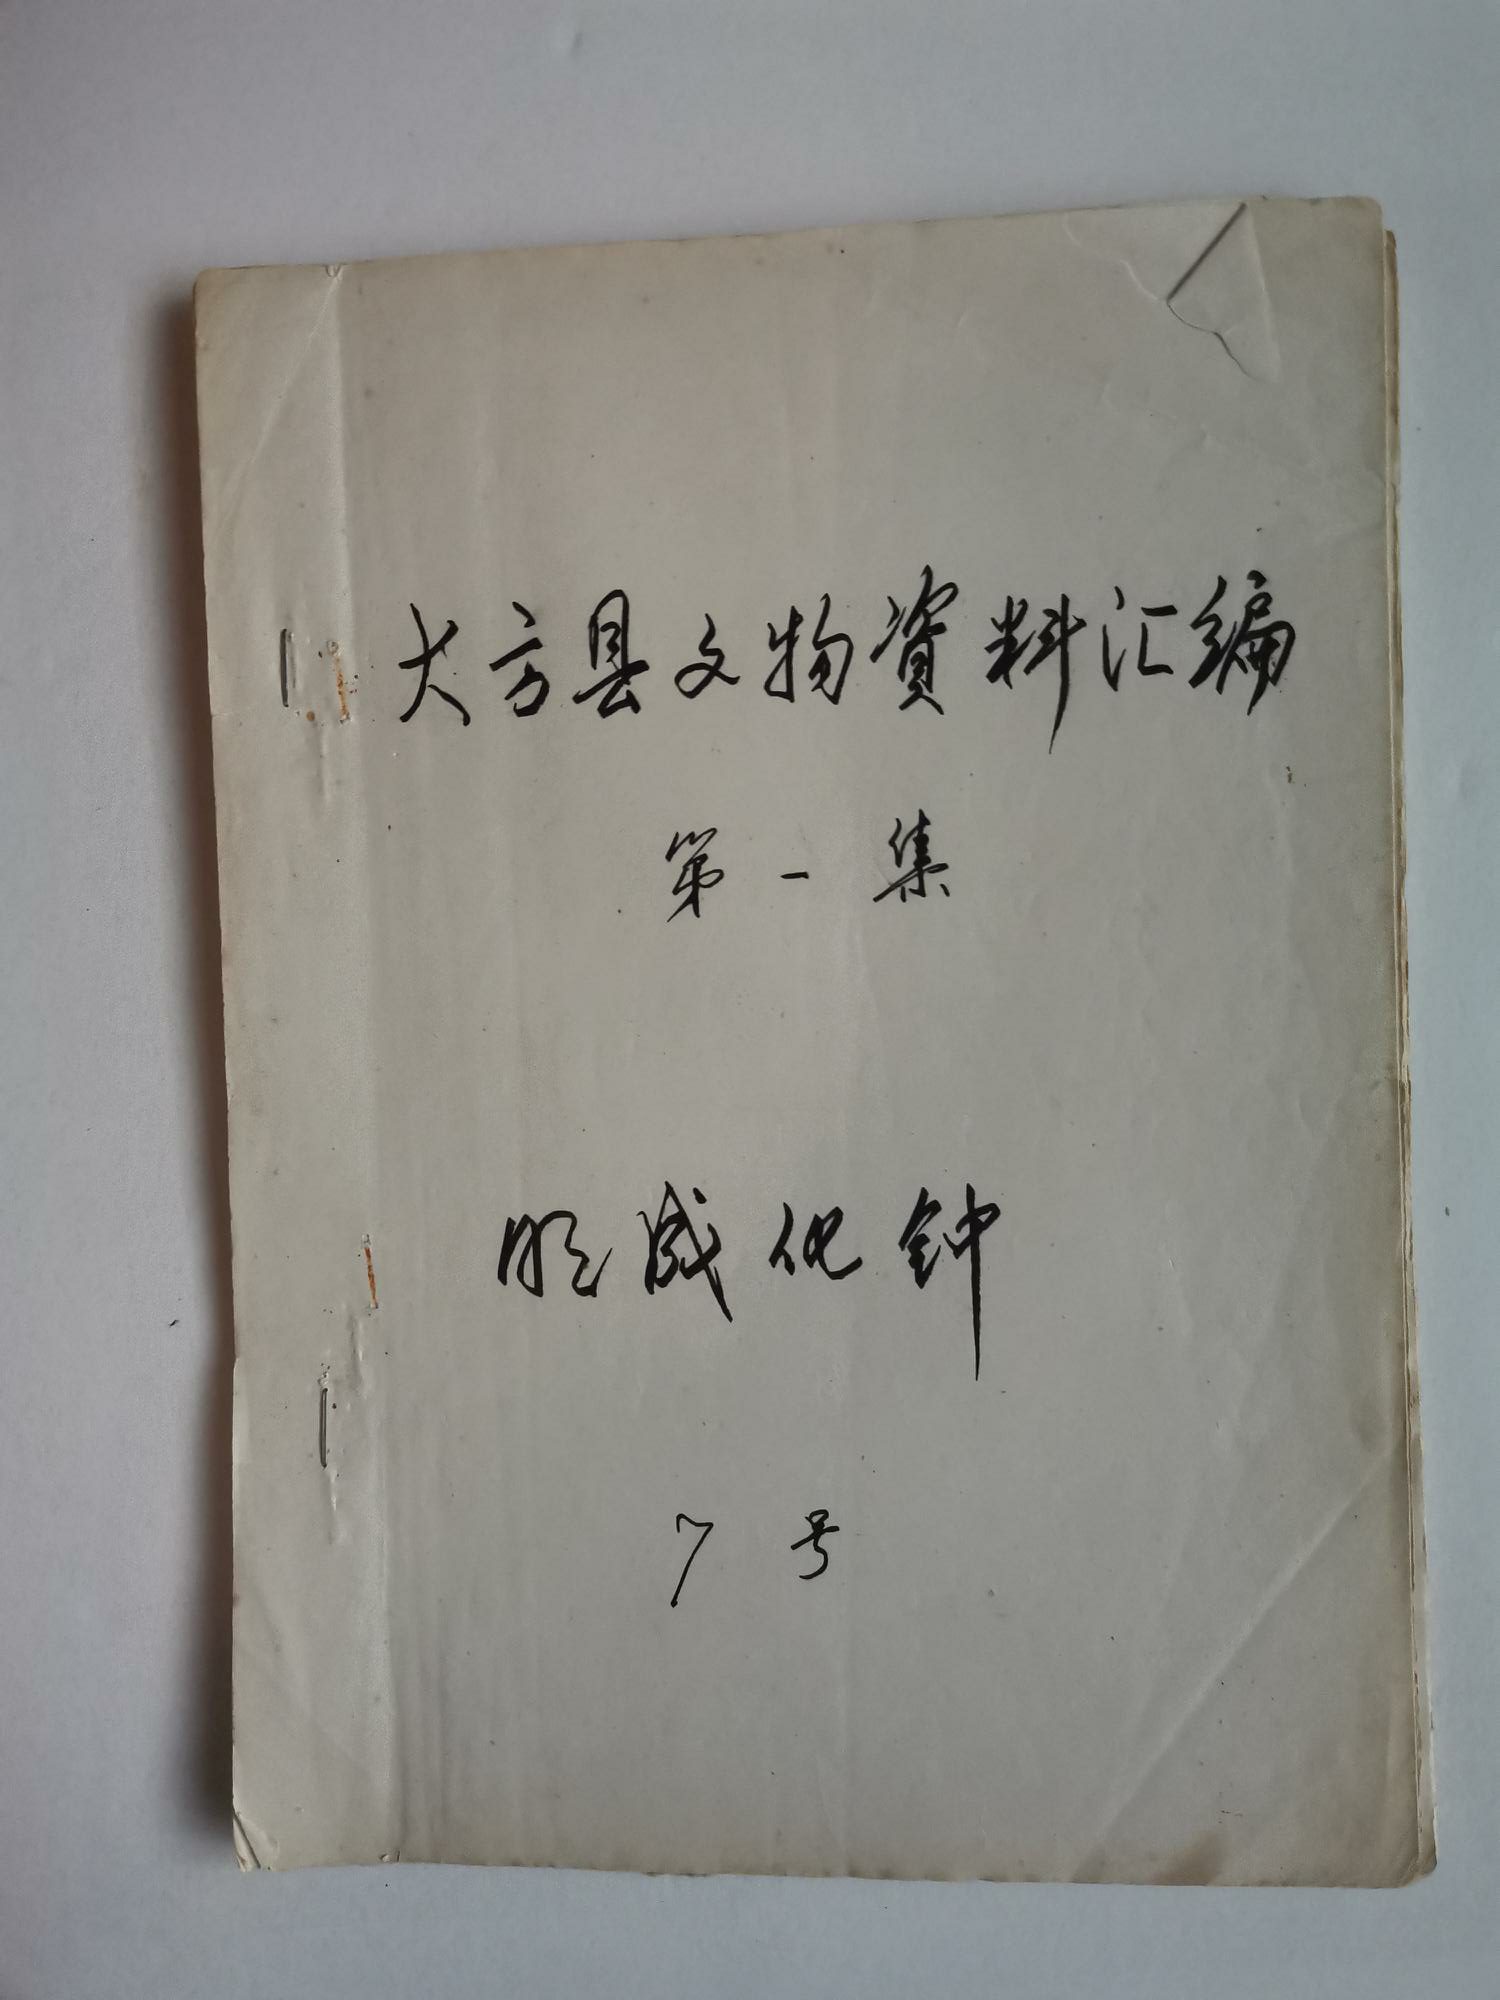 大方县文物资料汇编
第一集
明成化钟
7号